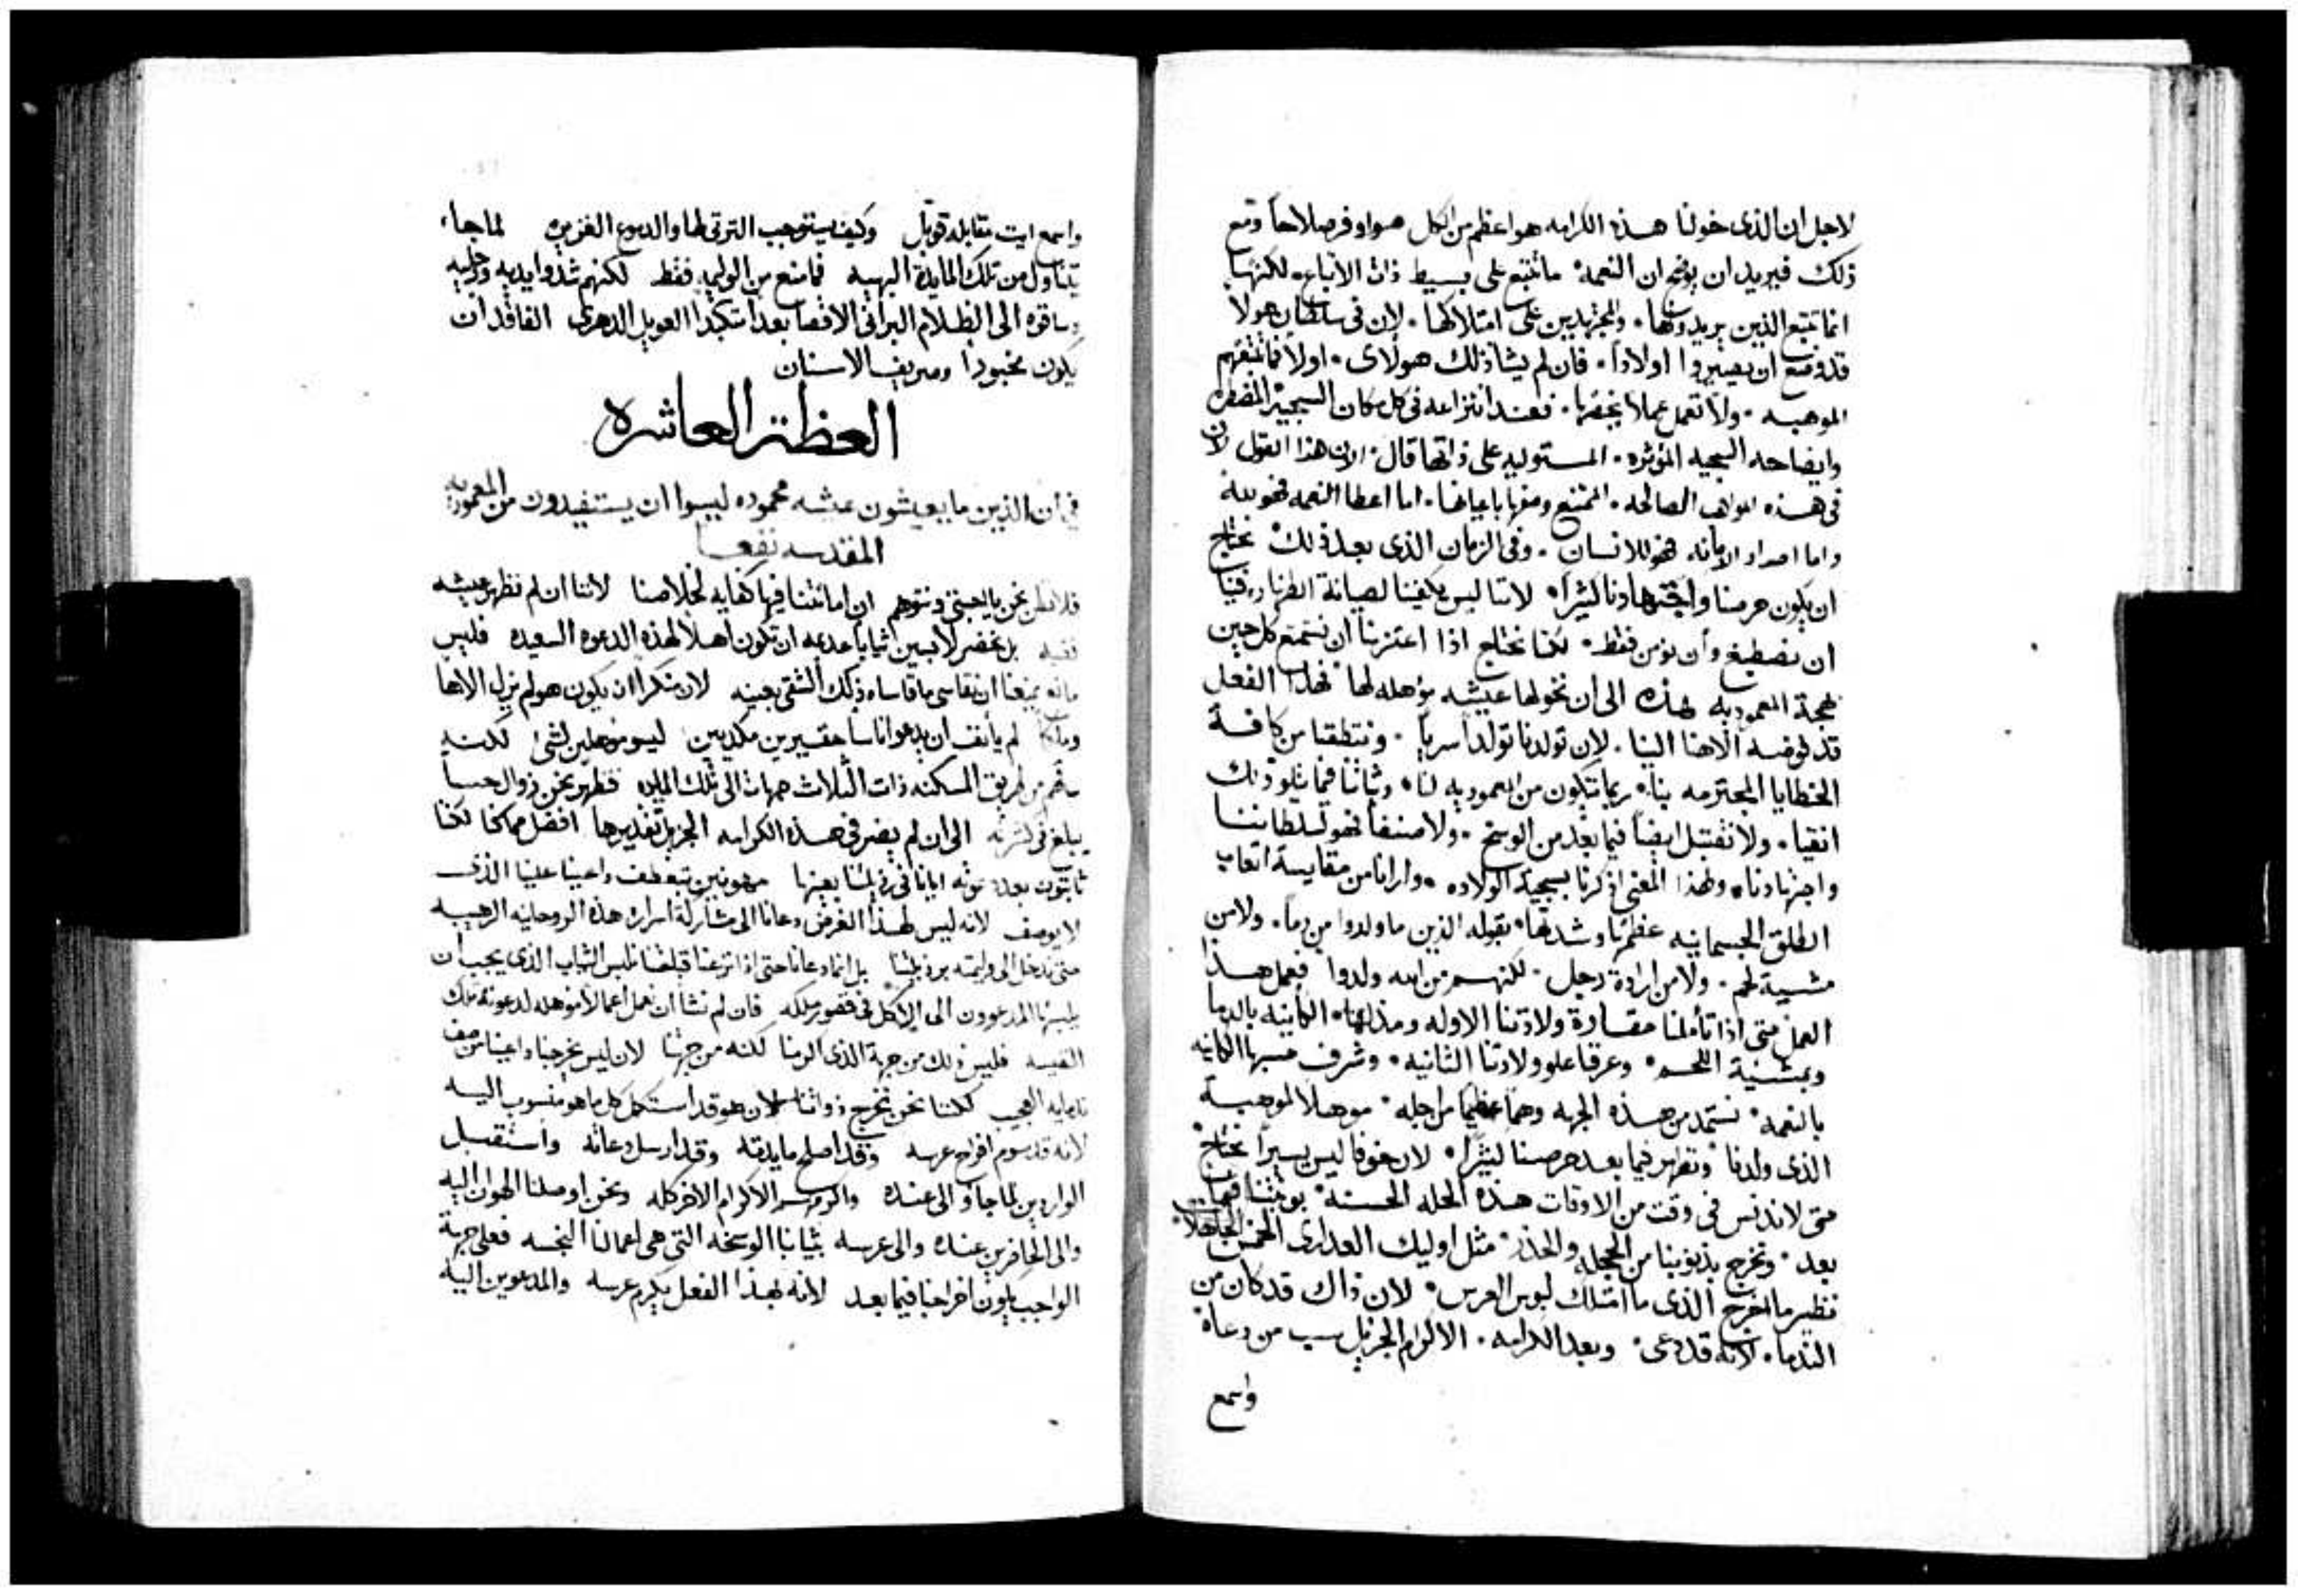 لاجل ان الذى خولنا هذه الكرامه هو اعظم من الكل هو اوفر صلاحاً ومع
ذلك فيريد ان يوضح ان النعمه ما تتبع على بسيط ذات الاتباع لكنها
انما تتبع الذين يريدونها والمجتهدين على امتلاكها لان فى سلطان هولا
قد وضع ان يصيروا اولاداً فان لم يشا ذلك هولاى اولاً فما تتبعهم
الموهبه ولا تعمل عملاً يخصها فعند انتزاعه فى كل مكان السجيه المضطره
وايضاحه السجيه المؤثره المستوليه على ذاتها قال الان هذا القول لان
فى هذه المواهب الصالحه الممتنع وصفها باعيانها اما اعطا النعمه فهو لله
واما امداد الامانه فهو للانسان وفى الزمان الذى بعد ذلك نحتاج
ان يكون حرصنا واجتهادنا كثيراً لاننا ليس يكفينا لصيانة الطهاره فينا
ان نصطبغ وان نؤمن فقط لكنا نحتاج اذا اعتزمنا ان نتمتع كل حين
بهجة المعموديه هذه الى ان نخولها عيشه مؤهله لها فهذا الفعل
قد فوضه الاهنا الينا لان تولدنا تولداً سرياً وننتطقنا من كافة
الخطايا المجترمه بنا ربما تتكون من المعموديه لنا وثباتنا فيما يتلو ذلك
انقيا ولا نقتبل ايضاً فيما بعد من الوسخ ولا صنفاً فهو لسلطاننا
واجتهادنا ولهذا المعنى اذكرنا بسجية الولاده وارانا من مقايسة اتعاب
الطلق الجسمانيه عظمها وشدتها بقوله الذين ما ولدوا من دماً ولا من
مشيية لحم ولا من ارادة رجل لكنهم من الله ولدوا فعمل هذا
العمل متى اذا تأملنا حقارة ولادتنا الاوله ومذلتها الكاينه بالدما
وبمشيئة اللحم وعرفنا علو ولادتنا الثانيه وشرف حسبها الكاينه
بالنعمه نستمد من هذه الجهه وهماً عظيماً من اجله موهلا لموهبة
الذى ولدنا ونظهر فيما بعد حرصنا كثيراً لان خوفا ليس يسيراً نحتاج
متى لا ندنس فى وقت من الاوقات هذه الحله الحسنه بونيتنا فيما
بعد ونخرج بذنوبنا من الحجله والخدر مثل اوليك العدارى الخمس الجاهلات
نظير ما اخرج الذى ما امتلك لبوس العرس لان ذاك قد كان من
الندما لانه قد دعى وبعد الكرامه الاكرام الجزيل سب من دعاه
واسمع
واسمع ايت مقابله قوبل وكيف يستوجب الترثى لها والدموع الغزيره لما جاء
يتناول من تلك المايدة البهيه فما منع من الوليمه فقط لكنهم شدوا يديه ورجليه
وساقوه الى الظلام البرانى الاقصا بعد استكبد العويل الدهرى الفاقد ان
يكون مخبوراً وصريف الاسنان
العظة العاشره
فى ان الذين ما يعيشون عيشه محموده ليسوا ان يستفيدون من المعموديه
المقدسه نفعاً
فلا نظن نحن يا احبتى ونتوهم ان امانتنا فيها كفايه لخلاصنا لاننا ان لم نظهر عيشه
نقيه بل نحضر لابسين ثياباً عدمه ان تكون اهلا لهذه الدعوه السعيده فليس
مانع يمنعنا ان نقاسى ما قاساه ذلك الشقى بعينه لان منكراً ان يكون هو لم يزل الاها
وملكاً لم يأنف ان يدعو اناساً حقيرين مكديين ليسو موهلين لشئ لكنه
ساقهم من طريق المسكنه ذات الثلاث جهات الى تلك المايده فظهر نحن زوال حسنا
يبلغ فى كثرته الى ان لم يصر فى هذه الكرامه الجزيل تقديرها افضل مما كنا لكنا
ثابتون بعد دعوته ايانا فى رذيلتنا بعينها مهونين بتعطف داعينا علينا الذى
لا يوصف لانه ليس لهذا الغرض دعانا الى مشاركة اسراره هذه الروحانيه الرهيبه
متى ندخل الى وليمته برذيلتنا بل انما دعانا حتى اذا نزعنا قباحتنا نلبس الثياب الذى يجب ان
يلبسها المدعوون الى الاكل فى قصور ملكه فان لم نشا ان نعمل اعمالاً موهله لدعوته تلك
النفيسه فليس ذلك من جهة الذى اكرمنا لكنه من جهتنا لان ليس يخرجنا داعينا من صف
ندمايه العجيب لكننا نحن نخرج ذواتنا لان هو قد استكمل كل ما هو منسوب اليه
لانه قد رسوم افراح عرسه وقد اصلح مايدته وقد ارسل دعاته واستقبل
الواردين لما جاؤ الى عنده واكرمهم الاكرام الاخر كله ونحن اوصلنا الهوان اليه
والى الحاضرين عنده والى عرسه بثيابنا الوسخه التى هى اعمالنا النجسه فعلى جهة
الواجب يكون اخراجنا فيما بعد لانه بهذا الفعل يكرم عرسه والمدعوين اليه